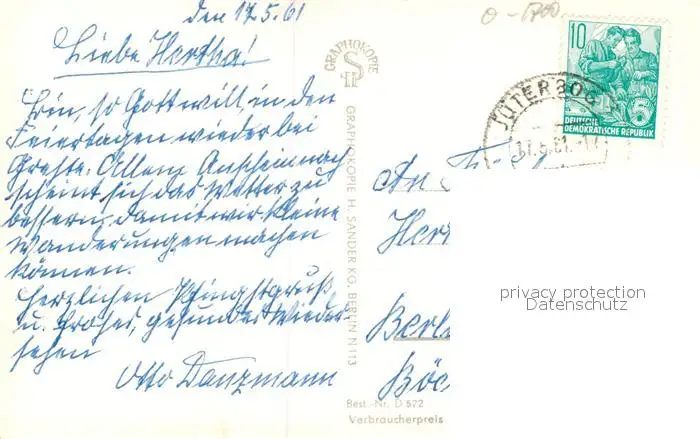 den 17.5.61
Liebe Hertha!
bin, so Gott will, in den
Feiertagen wieder bei
Grete. Allem Anschein nach
scheint sich das Wetter zu
bessern, damit wir kleine
Wanderungen machen
können.
Herzlichen Pfingstgruß
u. frohes, gesundes Wieder
sehen
Otto Danzmann
GRAPHOKOPIE
SH
GRAPHOKOPIE H. SANDER KG. BERLIN N 113
Best.-Nr. D 522
Verbraucherpreis
10
5
DEUTSCHE
DEMOKRATISCHE REPUBLIK
JÜTERBOG
17.5.61.
An Fr
Her
Berl
Böc
privacy protection
Datenschutz